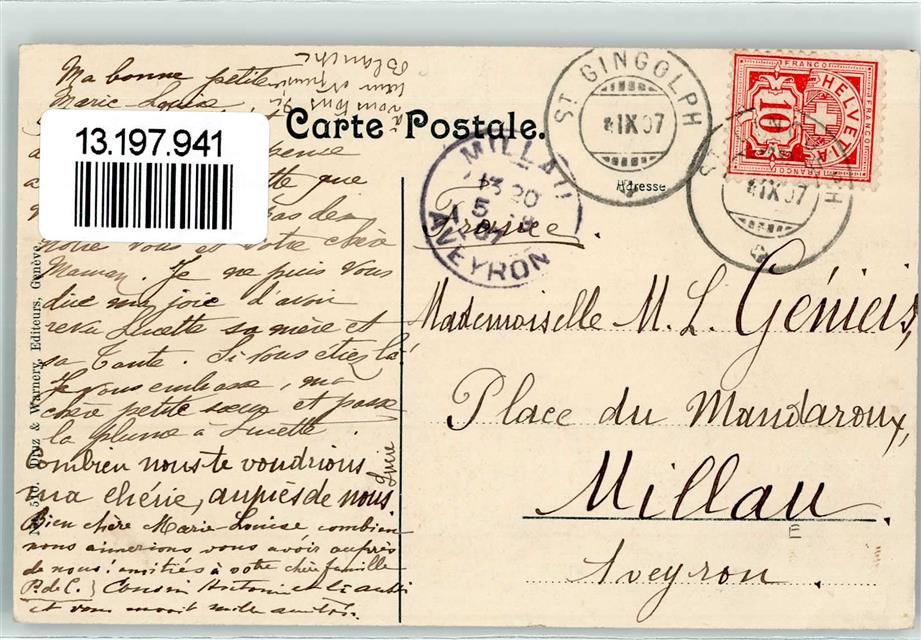 Ma bonne petite
Marie Louise,
13.197.941
pense
que
notre vous et votre chère
Maman. Je ne puis vous
dire ma joie d'avoir
revu Lucette sa mère et
sa Tante. Si vous étiez là!
Je vous embrasse, ma
chère petite sœur et passe
la plume à Lucette.
Combien nous te voudrions
ma chérie, auprès de nous
Lucie
Bien chère Marie-Louise combien
nous aimerions vous avoir auprès
de nous! amitiés à votre chère famille
P. de C.) Cousin Antonin est ici aussi
et vous
à
vous tous
Blanche
Carte Postale.
Adresse
ST. GINGOLPH
IX 07
ST. GINGOLPH
IX 07
FRANCO
HELVETIA
10
FRANCO
FRANCO
MILLAU
13 20
5 -8
07
AVEYRON
France.
Mademoiselle M. L. Génieis,
Place du Mandaroux,
Millau.
E
Aveyron.
& Warnery, Editeurs, Genève.